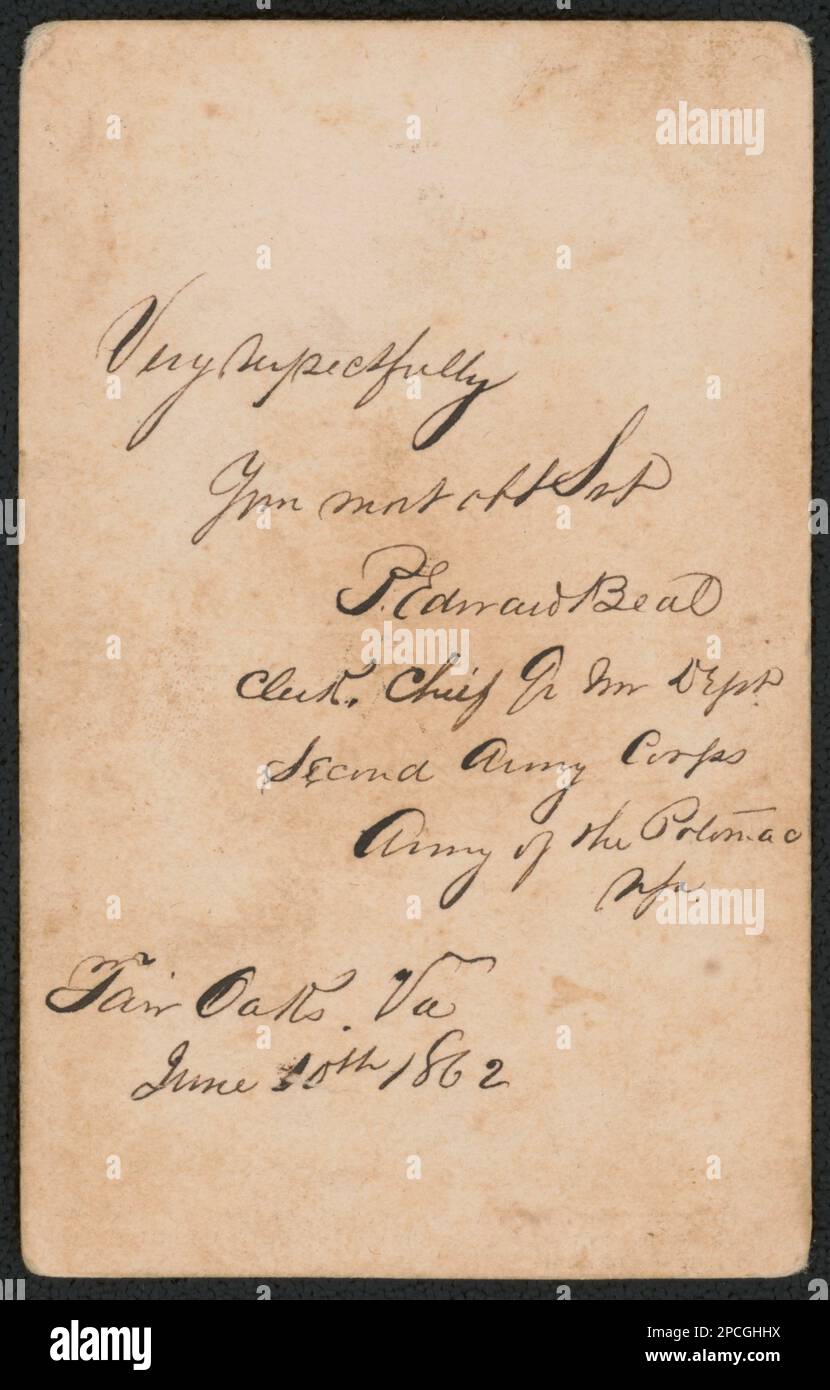 Very respectfully
Your most obt Svt
P. Edward Beal
Clerk. Chief Qr Mr Dept.
Second Army Corps
Army of the Potomac
Fair Oaks. Va
June 10th 1862
alamy
alamy
alamy
alamy
Image ID: 2PCGHHX
www.alamy.com